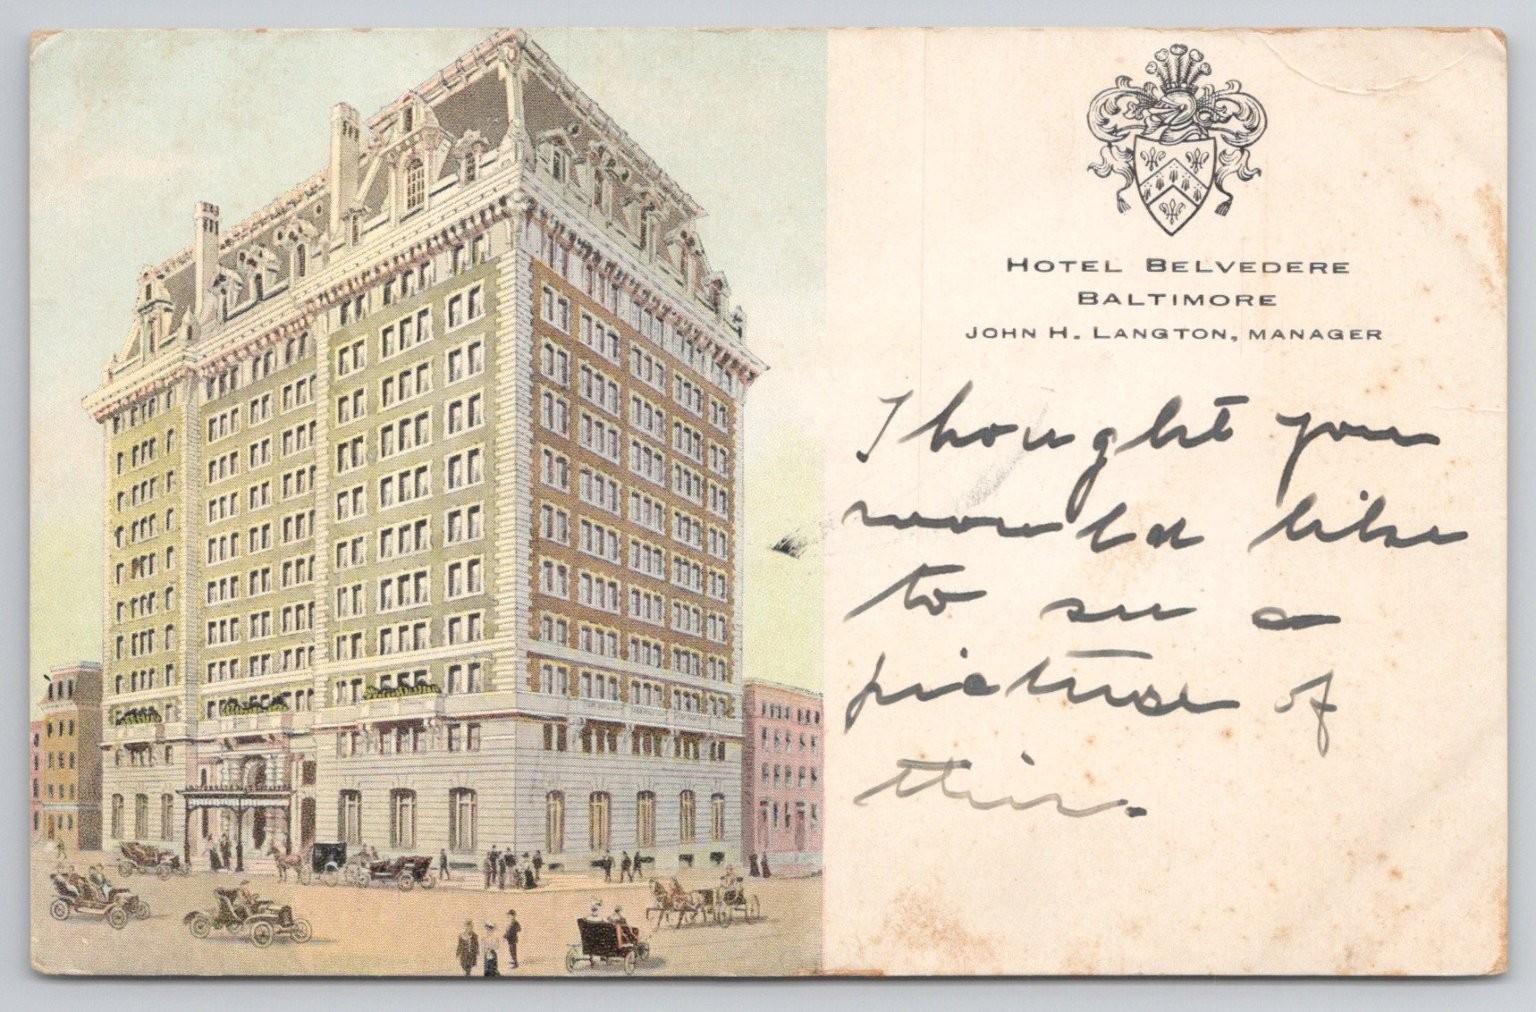 HOTEL BELVEDERE
BALTIMORE
JOHN H. LANGTON, MANAGER
Thought you
would like
to see a
picture of
this.